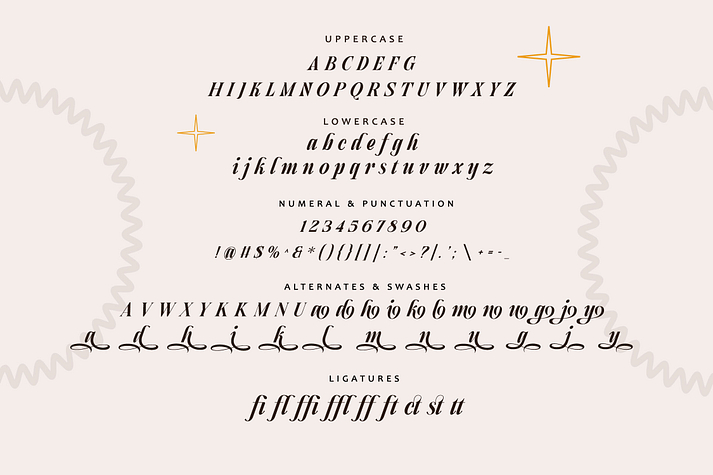 UPPERCASE
ABCDEFG
HIJKLMNOPQRSTUVWXYZ
LOWERCASE
abcdefgh
ijklmnopqrstuvwxyz
NUMERAL & PUNCTUATION
1234567890
!@#$%^&*(){}[]|:"<>?/.,';\+=-_
ALTERNATES & SWASHES
A V W X Y K K M N U ao do ho io ko lo mo no uo go jo yo
a d h i k l m n u g j y
LIGATURES
fi fl ffi ffl ff ft ct st tt